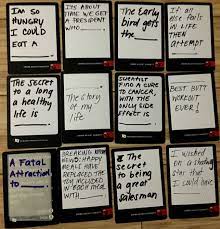 I'm so
HUNGRY
I COULD
EAT A
IT'S ABOUT
TIME WE GET
A PRESIDENT
WHO
The EARly
bird gets
the
If all
else fails
in LIFE
THEN
attempt
The SECRET
to a long
a healthy
life is
The story
of my
life.
SCIENTIST
FIND A CURE
TO CANCER,
WITH THE
ONLY SIDE
EFFECT IS
BEST BUTT
WORKOUT
EVER!
A FATAL
Attraction to
BREAKING
NEWS: HAPPY
MEALS HAVE
REPLACED THE
TOY INCLUDED
IN EACH MEAL
WITH
The
secret
to being
a great
salesman
I wished
on a shooting
star
that I could